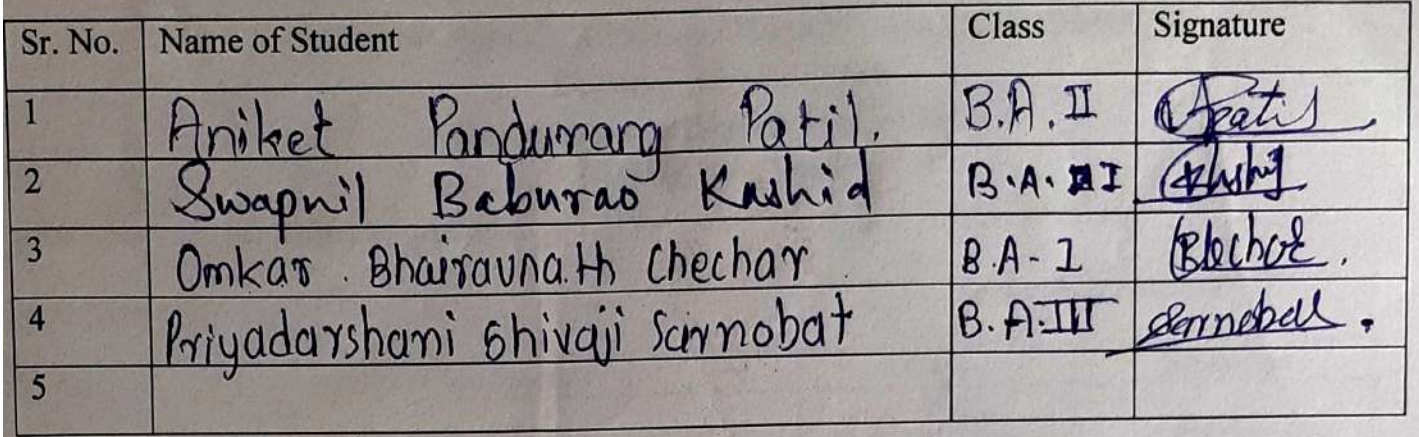 Sr. No. Name of Student Class Signature
1 Aniket Pandurang Patil. B.A. II Patil
2 Swapnil Baburao Kashid B.A. I
3 Omkar . Bhairavnath Chechar B.A - I
4 Priyadarshani Shivaji Sarnobat B. A. III Sarnobat .
5